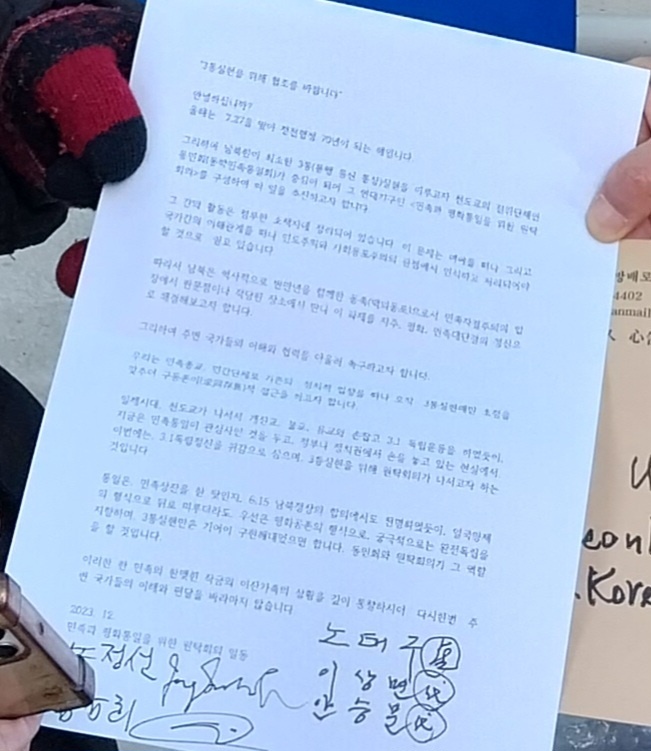 "3통실현을 위해 협조를 바랍니다"
안녕하십니까?
올해는 7.27을 맞아 정전협정 70년이 되는 해입니다.
그리하여 남북한이 최소한 3통(통행 통신 통상)실현을 이루고자 천도교의 전위단체인
동민회(동학민족통일회)가 중심이 되어 그 연대기구인 <민족과 평화통일을 위한 원탁
회의>를 구성하여 이 일을 추진하고자 합니다.
그 간의 활동은 첨부한 소책자에 정리되어 있습니다. 이 문제는 여야를 떠나 그리고
국가간의 이해관계를 떠나 인도주의와 사회용도주의의 관점에서 인식하고 처리되어야
할 것으로 믿고 있습니다
따라서 남북은 역사적으로 반만년을 함께한 동족 으로서 민족자결주의의 입
장에서 판문점이나 적당한 장소에서 만나 이 의제를 자주, 평화, 민족대단결의 정신으
로 해결해보고자 합니다.
그리하여 주변 국가들의 이해와 협력을 다울러 촉구하고자 합니다.
우리는 민족종교, 민간단체로 기존의 정치적 입장을 떠나 오직 3통실현에만 초점을
맞추어 구동존이(求同存異)적 접근을 하고자 합니다.
일제시대, 천도교가 나서서 개신교, 불교, 유교와 손잡고 3.1 독립운동을 하였듯이,
지금은 민족통일이 관심사인 것을 두고, 정부나 정치권에서 손을 놓고 있는 현실에서
이번에는, 3.1독립정신을 귀감으로 삼으며, 3통실현을 위해 원탁회의가 나서고자 하는
것입니다
통일은, 민족상잔을 한 탓인지, 6.15 남북정상의 합의에서도 천명되었듯이, 일국양제
의 형식으로 뒤로 미루더라도, 우선은 평화공존의 형식으로, 궁극적으로는 완전독립을
지향하며, 3통실현만은 기어이 구현해내었으면 합니다. 동민회와 원탁회의가 그 역할
을 할 것입니다.
이러한 한 민족의 원맺힌 작금의 이산가족의 상황을 깊이 통찰하시어 다시한번 주
변 국가들의 이해와 편달을 바라마지 않습니다
2023. 12.
민족과 평화통일을 위한 원탁회의 일동
노태구
이상면
안승문
노정선
방배로
4402
anmail
.Kore